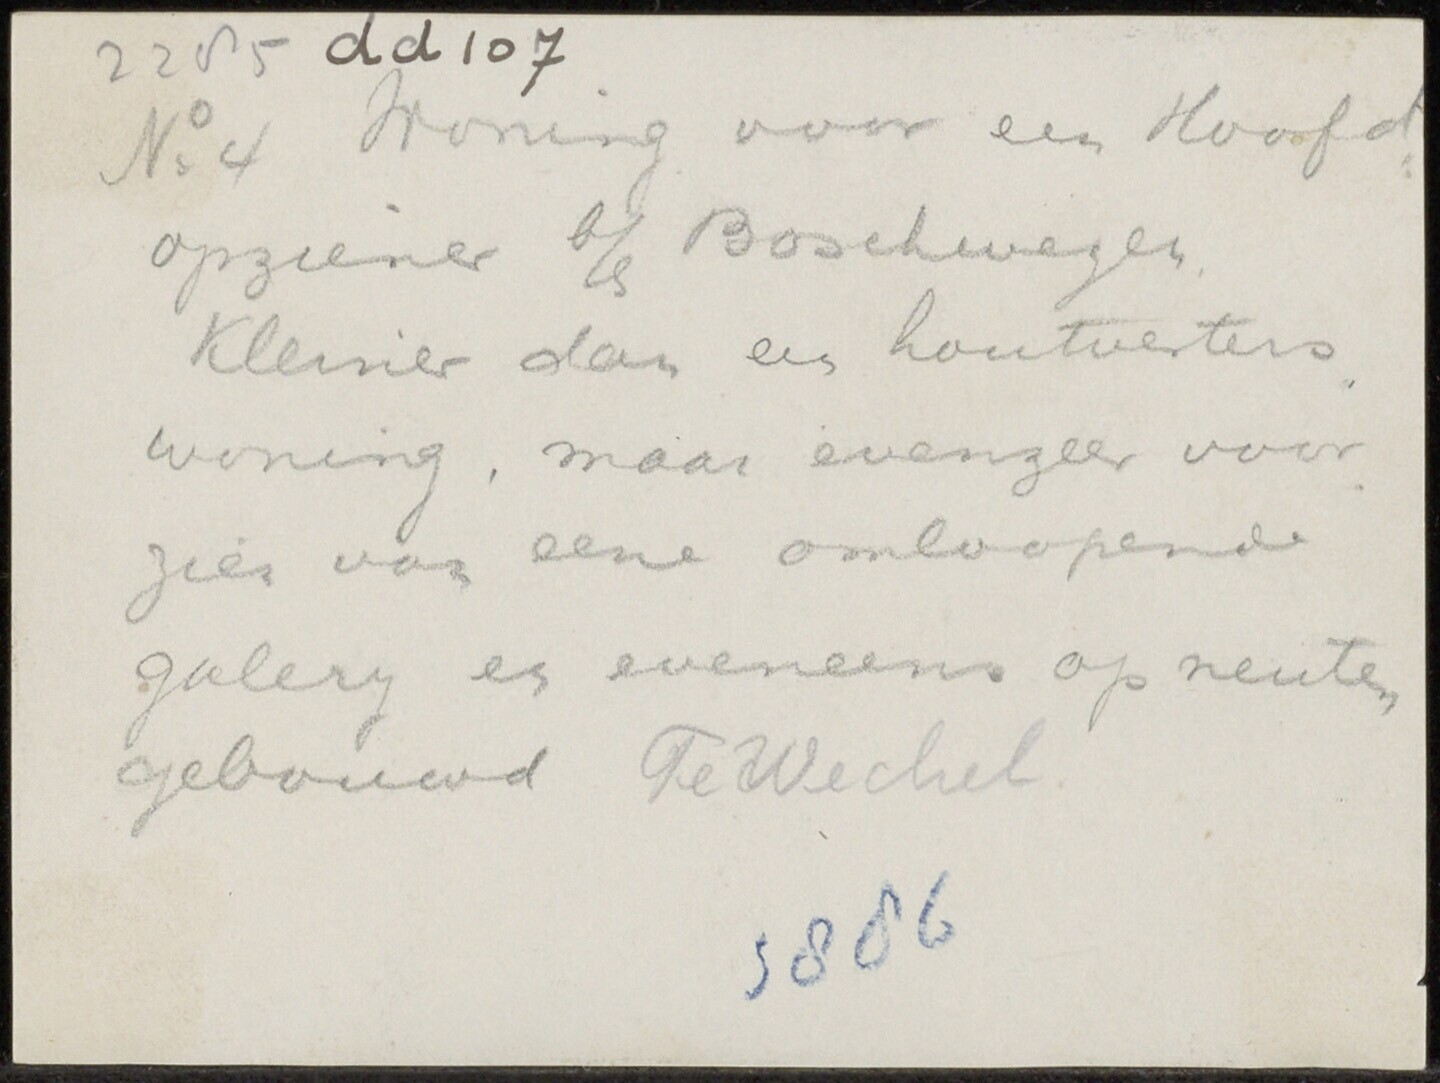 2285 dd107
No 4 Woning voor een Hoofd-
opziener b/s Boschwezen.
Kleiner dan een houtvesters-
woning, maar evenzeer voor-
zien van eene omloopende
galery en eveneens op neuten
gebouwd Te Wechel.
5886